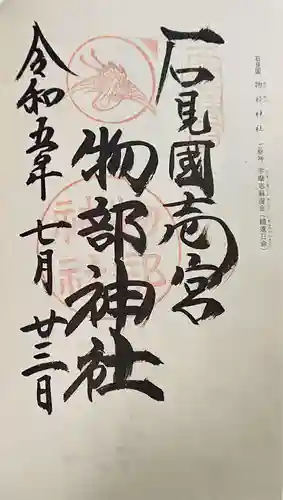 石見国 物部神社
石見國壱宮
物部神社
令和五年 七月 廿三日